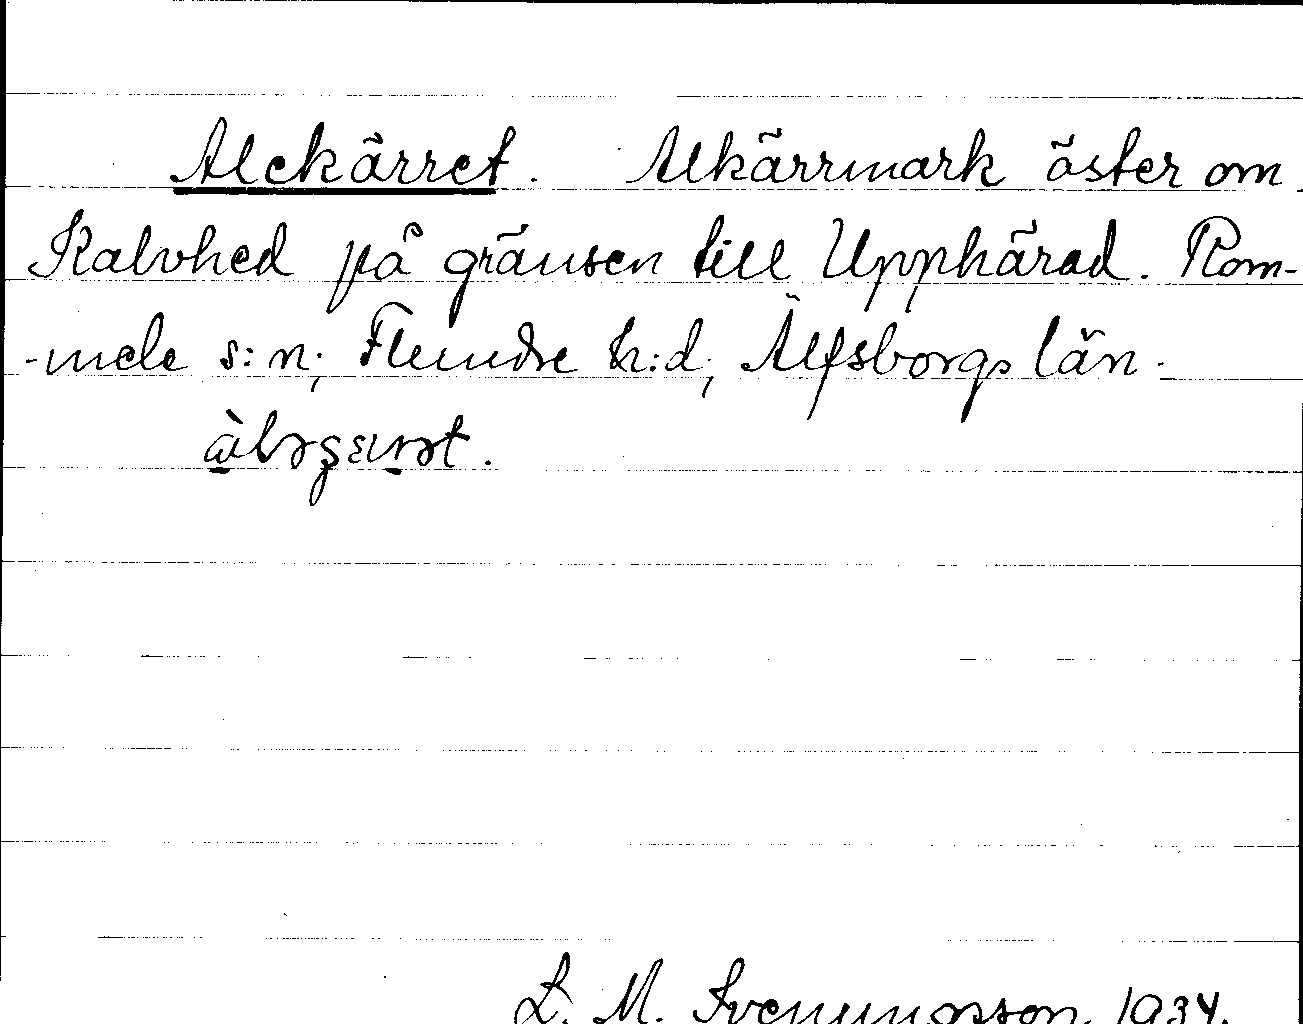 Alekärret. Alkärrmark öster om
Kalvhed på gränsen till Upphärad. Rom-
-mele s:n; Flundre h:d; Älfsborgs län.
L. M. Svenungsson. 1934.